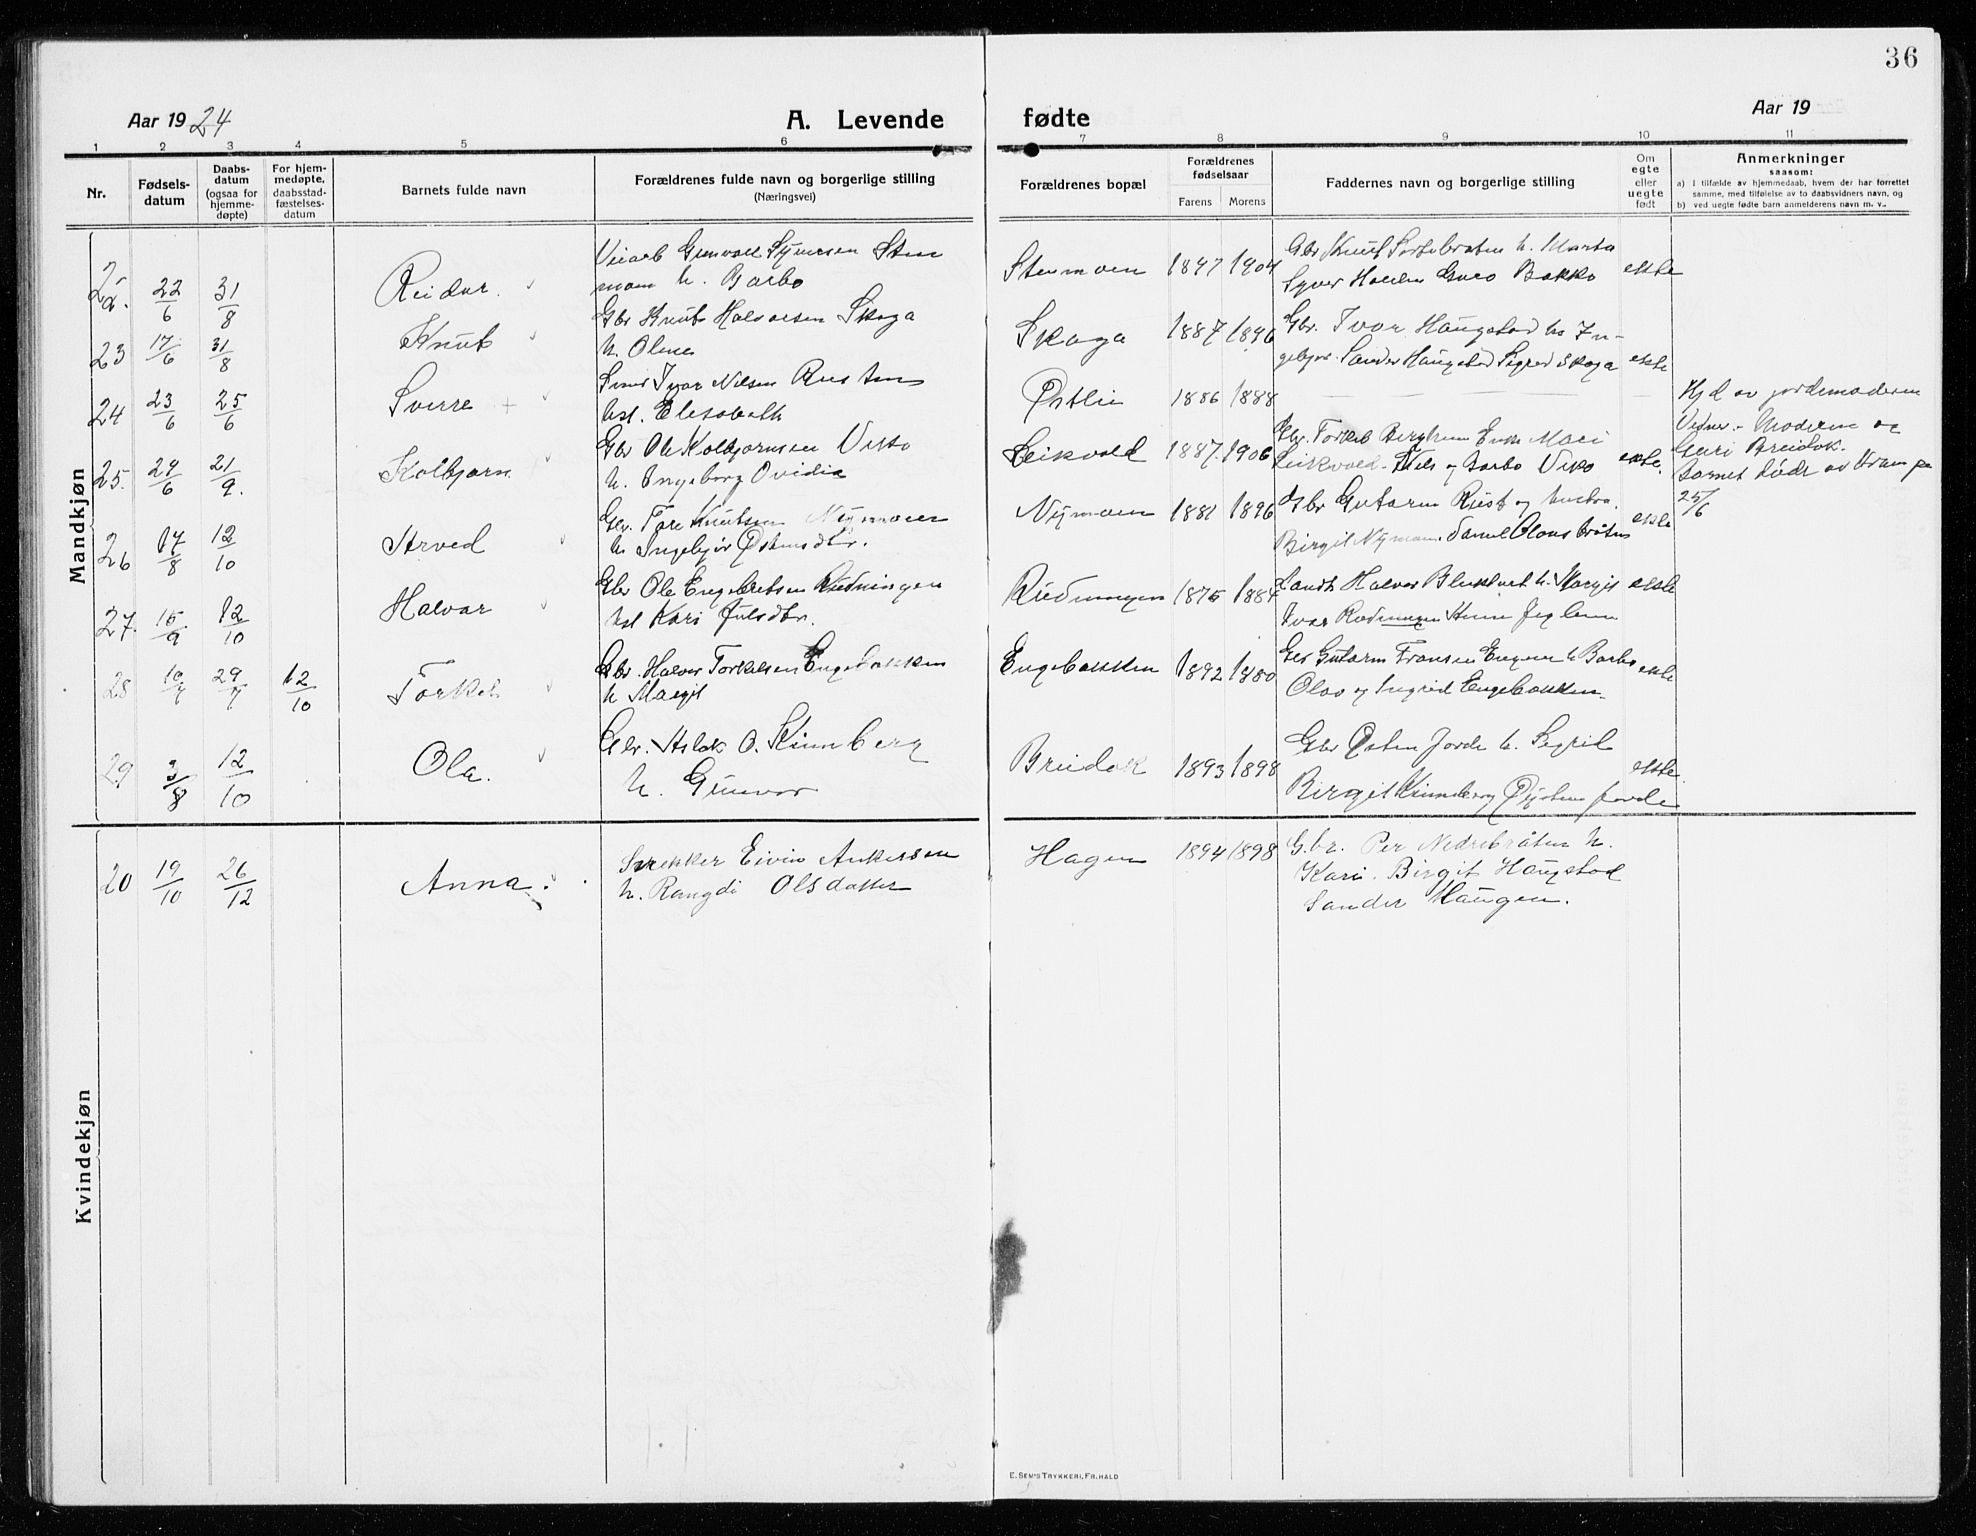 36
Aar 1924
A. Levende fødte
Aar 19
1 2 3 4 5 6 7 8 9 10 11
Nr.
Fødsels-
datum
Daabs-
datum
(ogsaa for
hjemme-
døpte)
For hjem-
medøpte,
daabsstad-
fæstelses-
datum
Barnets fulde navn
Forældrenes fulde navn og borgerlige stilling
(Næringsvei)
Forældrenes bopæl
Forældrenes
fødselsaar
Farens Morens
Faddernes navn og borgerlige stilling
Om
egte
eller
uegte
født
Anmerkninger
saasom:
a) I tilfælde av hjemmedaab, hvem der har forrettet
samme, med tilføielse av to daabsvidners navn, og
b) ved uegte fødte barn anmelderens navn m. v..
Mandkjøn
22. 22/6 31/8 Reidar.
Gunvald Syversen Sten
moen h. Barbo
Stenmoen 1897 1904
Gbr Knut Sortebråten h. Marta
Syver Guro Bakko
ekte
23 17/6 31/8 Knut
Gbr Knut Halvorsen Skaga
h. Olene
Skaga 1887 1896
Gbr. Ivar Haugstad h. In-
gebjør. Sander Haugstad Sigrid Skaga
ekte
24 23/6 25/6 Sverre +
Smed Ivar Nilsen Rusten
hst. Elisabeth
Østlie 1886 1888
Hjd av jordemoderen
Vidner - Moderen og
Guri Breidok.
Barnet døde av Krampe
25/6
25. 29/6 21/9. Kolbjørn
Gbr Ole Kolbjørnsen Visto
h. Ingeborg Ovidia
Leikvold 1887 1906
Gbr. Torkel Berghem Enke Mari
Leikvold. Nils og Barbo Visto
ekte.
26 17/8 12/10 Arved
Gbr. Tore Knutsen Nymoen
h. Ingebjør Østensdtr.
Nymoen 1881 1896
Gbr Gutorm Rust og hustru
Birgit Nymoen. Samuel Olausbråten
ekte
27. 15/9 12/10 Halvar
Gbr Ole Engebretsen Rudningen
hst Kari Julsdtr.
Rudningen 1875 1884
Landh. Halvor h. Margit
Ivar Rudningen Anne Jeglem
ekte
28 10/7 29/7 12/10 Torkel
Gbr. Halvor Torkelsen Engebakken
h Margit
Engebakken 1892 1880
Gbr Gutorm Fransen Engene h Barbo
Olav og Ingrid Engebakken.
ekte
29 3/8 12/10 Ola.
Gbr. Aslak O. Kinnberg
h. Gunvor
Breidok 1893 1898
Gbr Østen Jorde h. Sigrid
Birgit Kinnberg Øysten Jorde
ekte
Kvindekjøn
20 19/10 26/12 Anna.
Snekker Eivin Ankersen
h. Rangdi Olsdatter
Hagen 1894 1898
G.br. Per Nedrebråten h.
Kari. Birgit Haugstad
Sander Haugen.
E. SEM'S TRYKKERI, FR.HALD